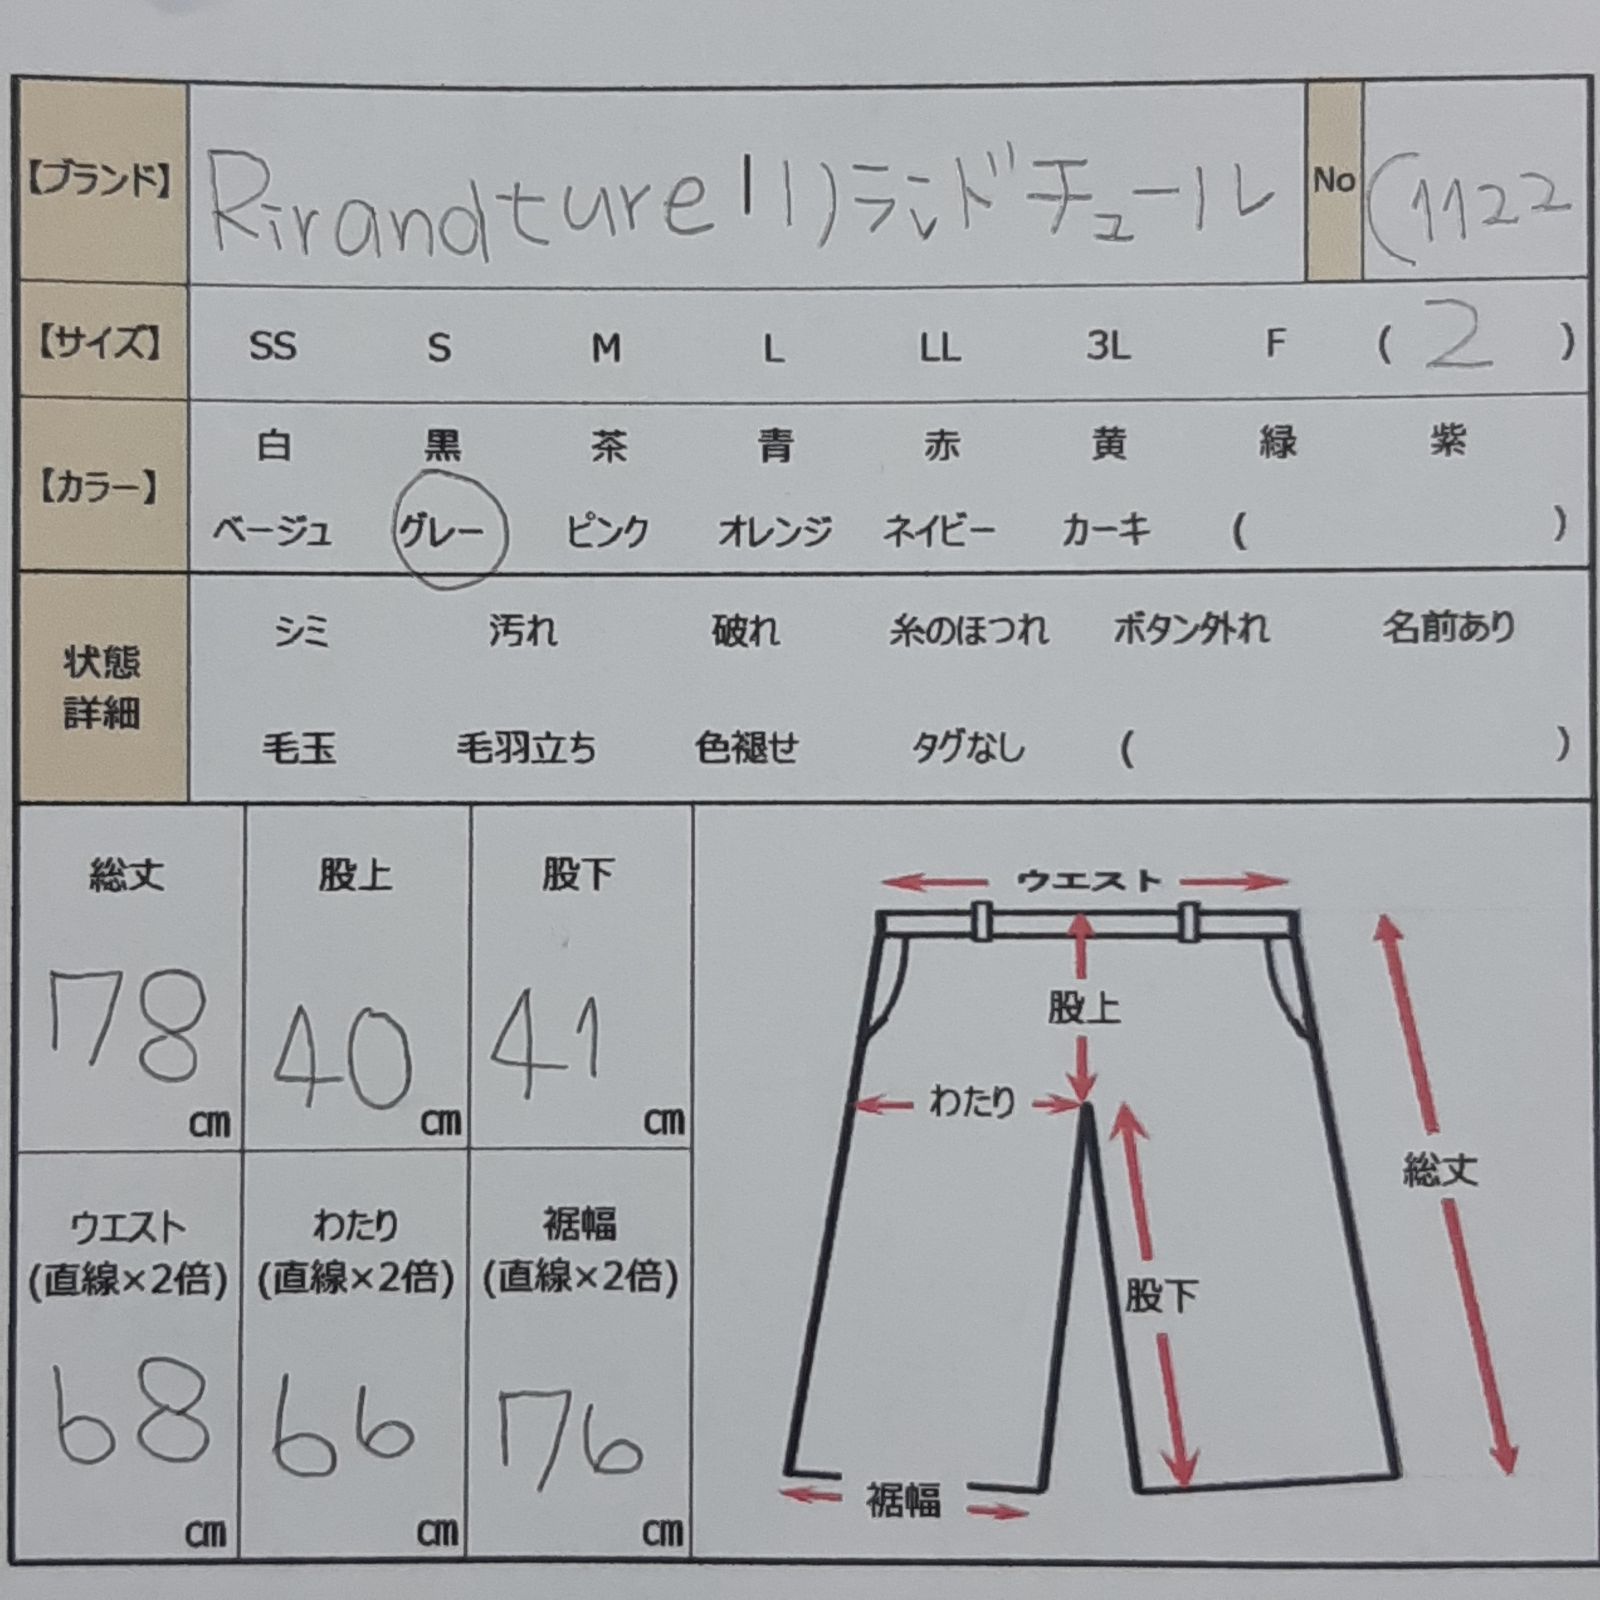 【ブランド】 Rirandture | リランドチュール No (1122
【サイズ】 SS S M L LL 3L F ( 2 )
【カラー】 白 黒 茶 青 赤 黄 緑 紫
ベージュ グレー ピンク オレンジ ネイビー カーキ ( )
状態詳細 シミ 汚れ 破れ 糸のほつれ ボタン外れ 名前あり
毛玉 毛羽立ち 色褪せ タグなし ( )
総丈 股上 股下
78 cm 40 cm 41 cm
ウエスト わたり 裾幅
(直線×2倍) (直線×2倍) (直線×2倍)
68 cm 66 cm 76 cm
ウエスト
股上
わたり
総丈
股下
裾幅